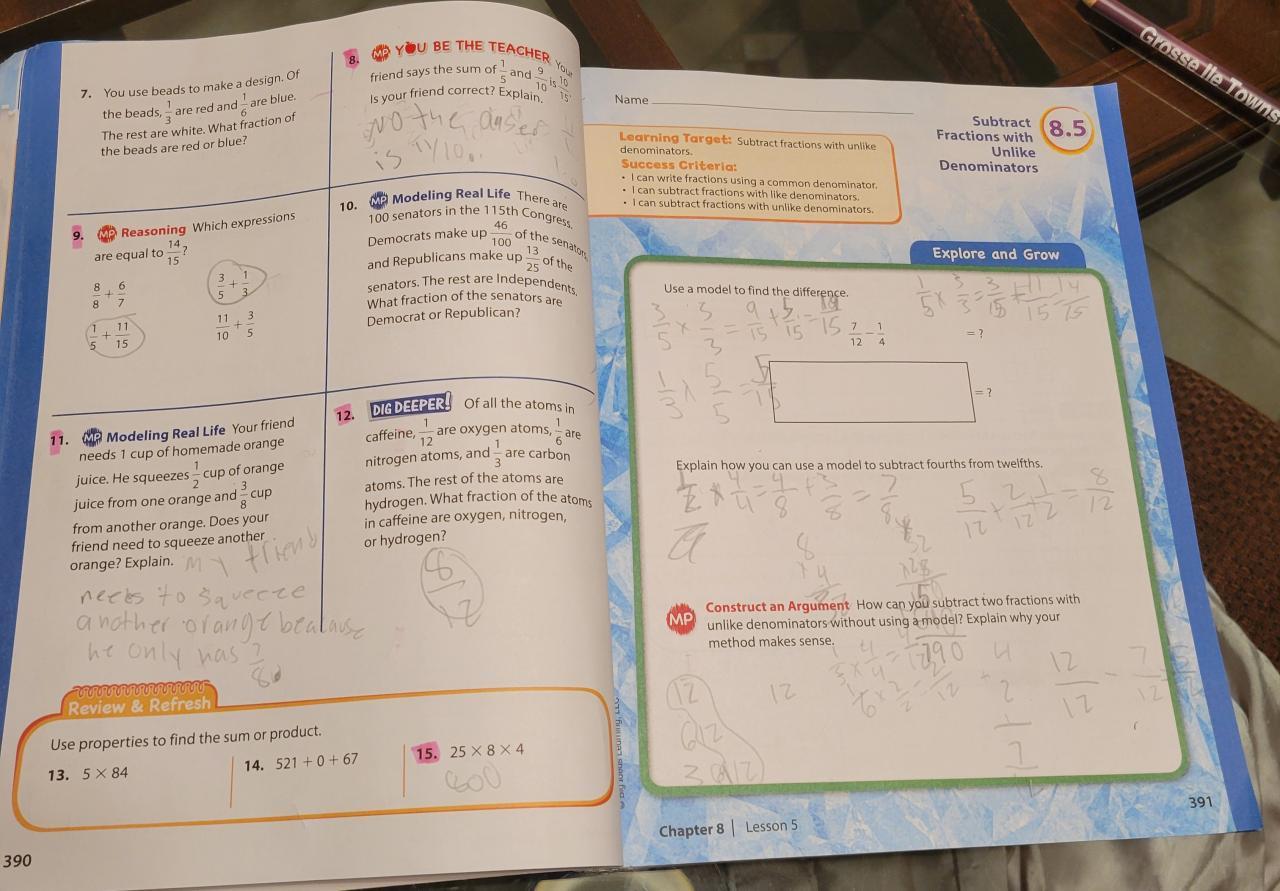 7. You use beads to make a design. Of
the beads, 1/3 are red and 1/6 are blue.
The rest are white. What fraction of
the beads are red or blue?
8. MP YOU BE THE TEACHER Your
friend says the sum of 1/5 and 9/10 is 10/15.
Is your friend correct? Explain.
No the anser
is 11/10.
9. MP Reasoning Which expressions
are equal to 14/15?
8/8 + 6/7
3/5 + 1/3
1/5 + 11/15
11/10 + 3/5
10. MP Modeling Real Life There are
100 senators in the 115th Congress.
Democrats make up 46/100 of the senators,
and Republicans make up 13/25 of the
senators. The rest are Independents.
What fraction of the senators are
Democrat or Republican?
11. MP Modeling Real Life Your friend
needs 1 cup of homemade orange
juice. He squeezes 1/2 cup of orange
juice from one orange and 3/8 cup
from another orange. Does your
friend need to squeeze another
orange? Explain. My friend
needs to squeeze
another orange
he only has 7/8
12. DIG DEEPER! Of all the atoms in
caffeine, 1/12 are oxygen atoms, 1/6 are
nitrogen atoms, and 1/3 are carbon
atoms. The rest of the atoms are
hydrogen. What fraction of the atoms
in caffeine are oxygen, nitrogen,
or hydrogen?
8/12
Review & Refresh
Use properties to find the sum or product.
13. 5 × 84
14. 521 + 0 + 67
15. 25 × 8 × 4
800
390
Name
Subtract
Fractions with
Unlike
Denominators
8.5
Learning Target: Subtract fractions with unlike
denominators.
Success Criteria:
• I can write fractions using a common denominator.
• I can subtract fractions with like denominators.
• I can subtract fractions with unlike denominators.
Explore and Grow
Use a model to find the difference.
1/5 × 3/3 = 3/15 + 11/15 = 14/15
3/5 × 3/3 = 9/15 + 5/15 = 14/15
7/12 − 1/4 = ?
1/3 × 5/5 = 5/15
= ?
Explain how you can use a model to subtract fourths from twelfths.
1/2 × 4/4 = 4/8 + 3/8 = 7/8
MP Construct an Argument How can you subtract two fractions with
unlike denominators without using a model? Explain why your
method makes sense.
12
Chapter 8 | Lesson 5
391
Grosse Ile Towns